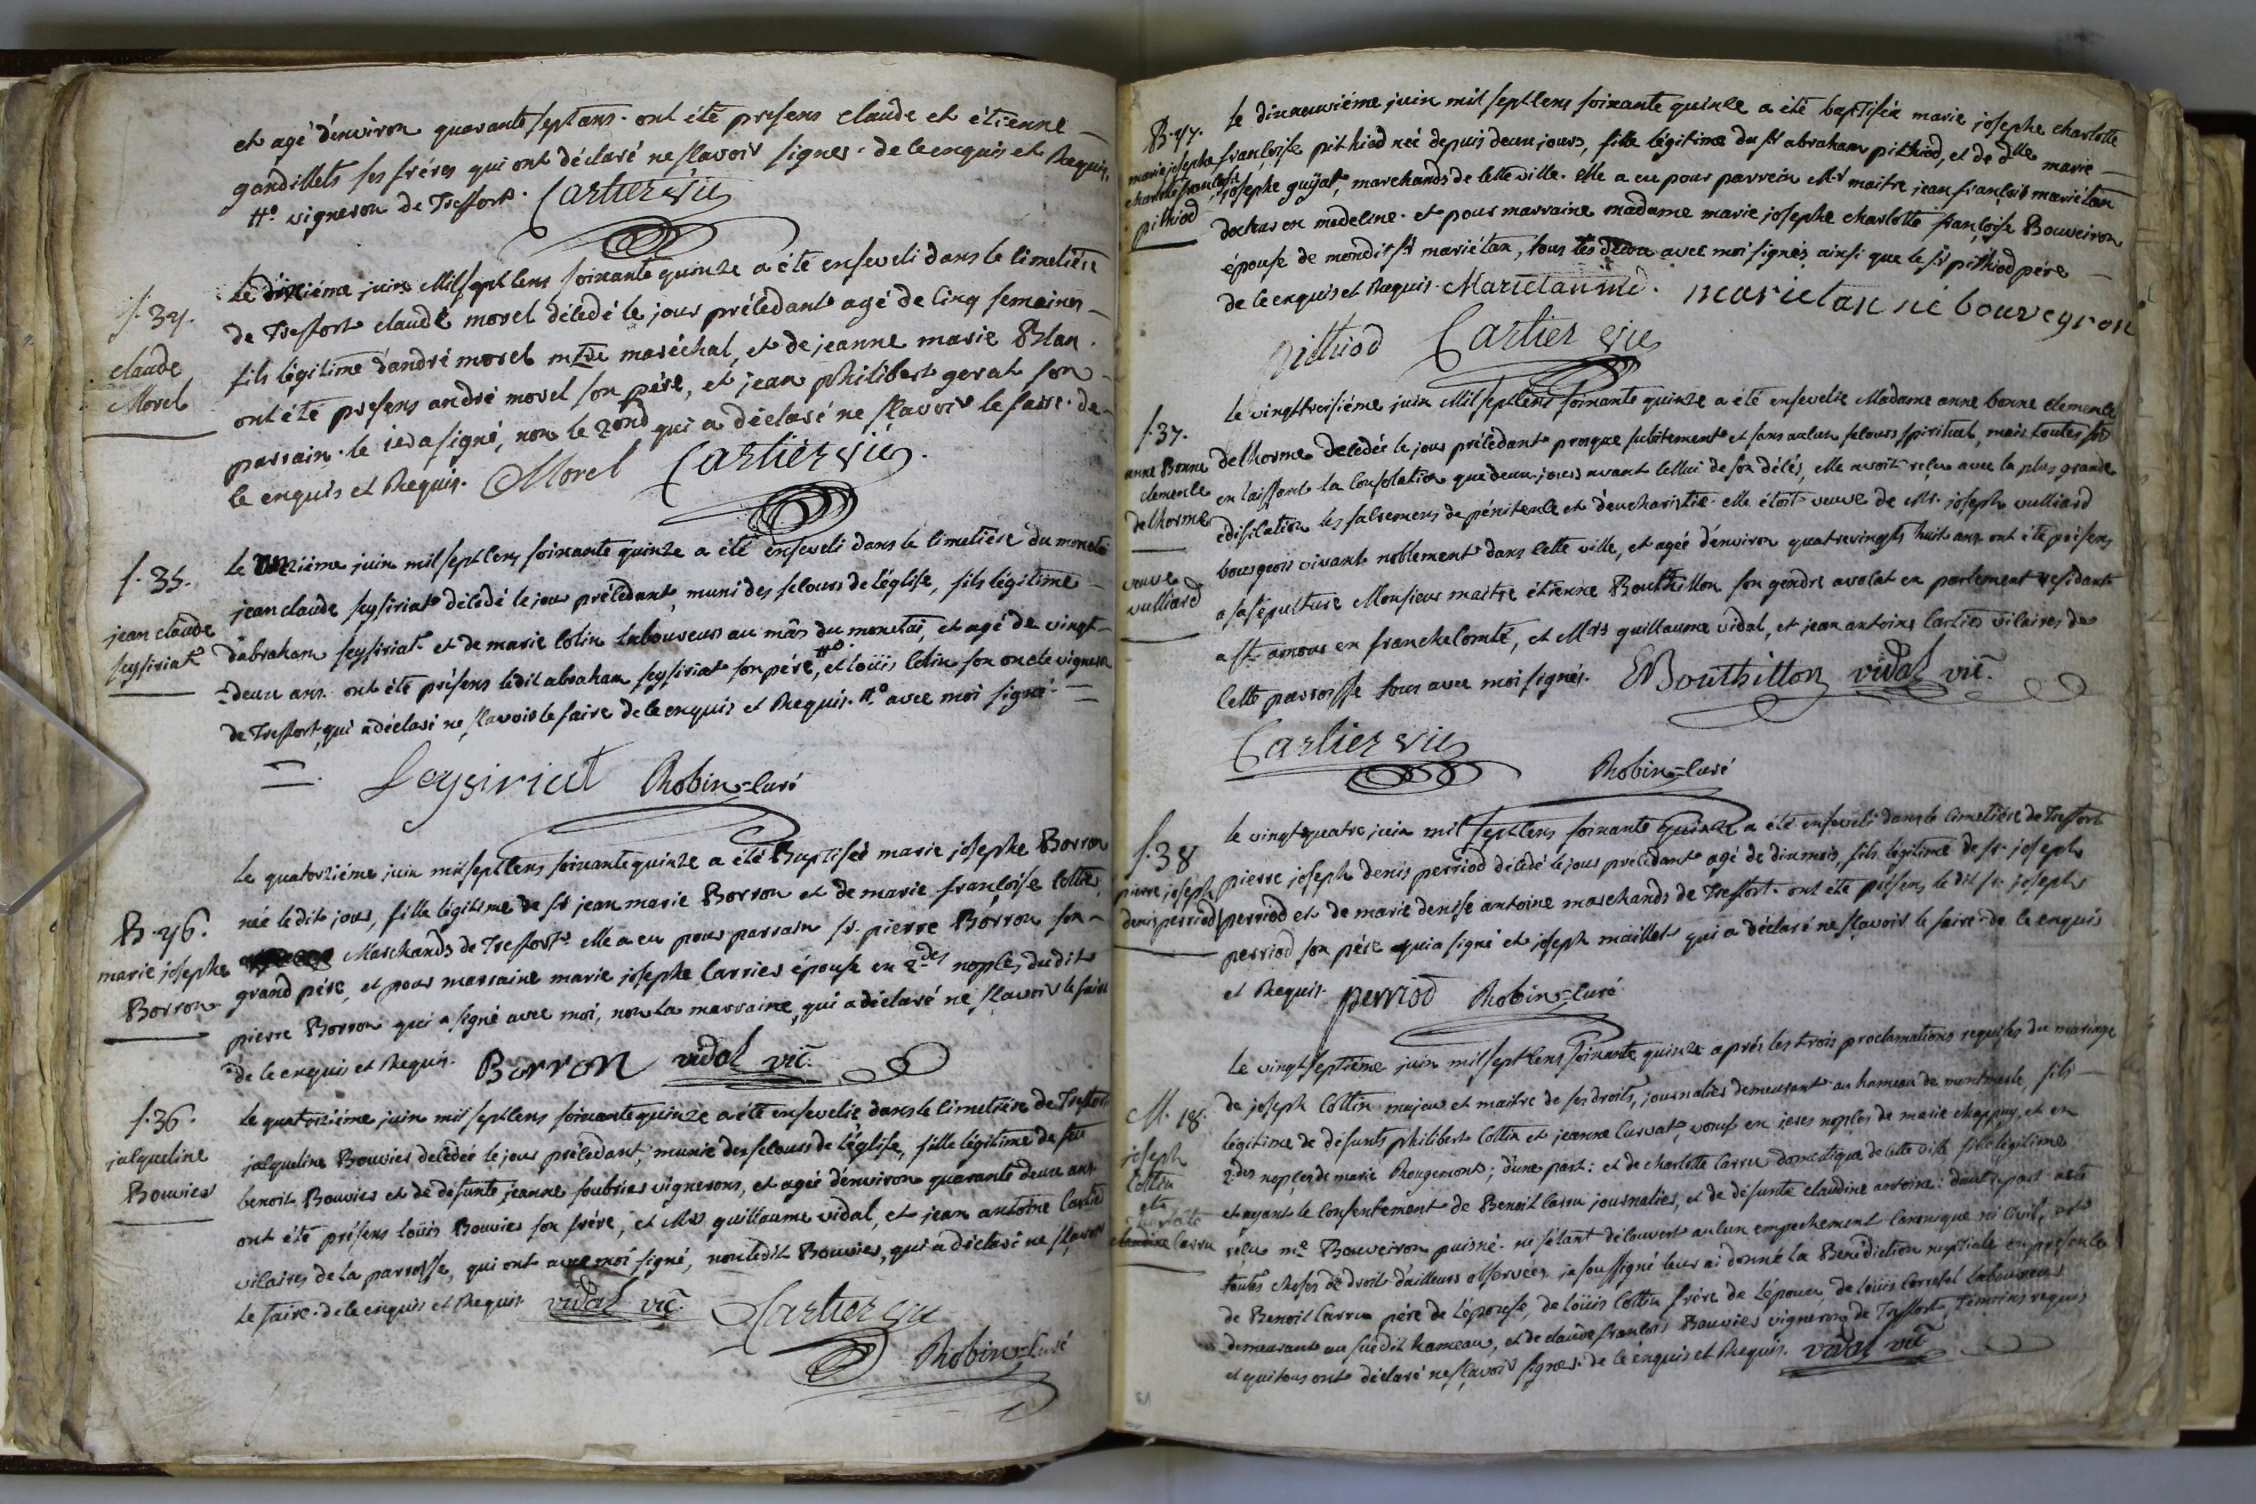 et agé d'environ quarante sept ans. ont été presens claude et étienne
gandillets ses fréres qui ont déclaré ne sçavoir signer. de ce enquis et Requis,
tt.° vigneron de Treffort. Cartier vic
s. 34.
claude
Morel
Le dixiéme juin Mil sept cens soixante quinze a été enseveli dans le cimetière
de Treffort claude morel décédé le jour précédant agé de cinq semaines
fils légitime d'andré morel mtre maréchal, et de jeanne marie Blan.
ont été presens andré morel son pére, et jean philibert gerat son
parrain. le 1er a signé, non le 2ond qui a déclaré ne sçavoir le faire. de
ce enquis et Requis. Morel Cartier vic.
s. 35.
jean claude
seysiriat
Le onziéme juin mil sept cens soixante quinze a été enseveli dans le cimetiére du monetai
jean claude seysiriat décédé le jour précédant, muni des secours de l'église, fils légitime
d'abraham seysiriat et de marie cotin laboureurs au mâs du monetai, et agé de vingt
deux ans. ont été présens ledit abraham seysiriat son pére, tt.° et loüis cotin son oncle vigneron
de Treffort, qui a déclaré ne sçavoir le faire de ce enquis et Requis. tt.° avec moi signé.
Seysiriat Robin=curé
B. 46.
marie josephe
Borron
Le quatorziéme juin mil sept cens soixante quinze a été Baptisée marie josephe Borron
née le dit jour, fille légitime de sr jean marie Borron et de marie françoise cottier
Marchands de Treffort. elle a eu pour parrain sr. pierre Borron son
grand pére, et pour marraine marie josephe Carrier épouse en 2.des nopces du dit
pierre Borron qui a signé avec moi, non la marraine, qui a déclaré ne sçavoir le faire
de ce enquis et Requis. Borron vidal vic.
s. 36.
jacqueline
Bouvier
Le quatorziéme juin mil sept cens soixante quinze a été ensevelie dans le cimetiére de Treffort
jacqueline Bouvier décédée le jour précédant, munie des secours de l'église, fille légitime de feu
benoit Bouvier et de défunte jeanne soubrier vignerons, et agée d'environ quarante deux ans
ont été présens loüis Bouvier son frére, et Mrs guillaume vidal, et jean antoine Cartier
vicaires de la parroisse, qui ont avec moi signé, non ledit Bouvier, qui a déclaré ne sçavoir
le faire. de ce enquis et Requis vidal vic. Cartier vic
Robin=curé
B. 47.
marie josephe
charlotte françoise
pithiod
Le dixneuviéme juin mil sept cens soixante quinze a été baptisée marie josephe charlotte
françoise pithiod née depuis deux jours, fille légitime du sr abraham pithiod, et de dlle marie
josephe guyat, marchands de cette ville. elle a eu pour parrein Mr maitre jean françois mariétan
docteur en medecine. et pour marraine madame marie josephe charlotte françoise Bouveiron
épouse de mondit sr mariétan, tous les deux avec moi signés ainsi que le sr pithiod pére
de ce enquis et Requis. Marietan md. marietan né bouveyron
Pithiod Cartier vic
s. 37.
anne Bonne
clemence
delhorme
veuve
vulliard
Le vingt troisiéme juin Mil sept cens soixante quinze a été ensevelie Madame anne bonne clemence
delhorme decedée le jour précédant presque subitement et sans aucun secours spirituel, mais toutes fois
en laissant la consolation que deux jours avant cellui de son décés, elle avoit reçu avec la plus grande
edification les sacremens de pénitence et d'eucharistie. elle étoit veuve de Mr. joseph vulliard
bourgeois vivant noblement dans cette ville, et agée d'environ quatre vingts huit ans ont été présens
a sa sépulture Monsieur maitre étienne Bouthillon son gendre avocat en parlement résidant
a st. amour en franche comté, et Mrs guillaume vidal, et jean antoine Cartier vicaires de
cette parroisse tous avec moi signés. EBouthillon vidal vic.
Cartier vic
Robin=curé
s. 38
pierre joseph
denis perriod
Le vingt quatre juin mil sept cens soixante quinze a été enseveli dans le cimetiére de Treffort
pierre joseph denis perriod décédé le jour précédant agé de dix mois, fils légitime de sr. joseph
perriod et de marie denise antoine marchands de Treffort. ont été présens le dit sr. joseph
perriod son pére qui a signé et joseph maillet qui a déclaré ne sçavoir le faire. de ce enquis
et Requis. perriod Robin=curé
M. 18.
joseph
Cottin
et
charlotte
Carru
Le vingt septiéme juin mil sept cens soixante quinze aprés les trois proclamations requises du mariage
de joseph Cottin majeur et maitre de ses droits, journalier demeurant au hameau de montmerle, fils
légitime de défunts philibert Cottin et jeanne Curvat, veuf en 1eres nopces de marie chappuy, et en
2.des nopces de marie Rougemont; d'une part: et de charlotte Carru domestique de cette ville fille légitime
et ayant le consentement de Benoit Carru journalier, et de défunte claudine antoine: d'autre part acte
reçu m.e Bouveiron puisné. ne s'étant découvert aucun empechement canonique ni civil, et
toutes choses de droit d'ailleurs observées je soussigné leur ai donné la Bénédiction nuptiale en présence
de Benoit Carru pére de l'épouse, de loüis Cottin frére de l'époux, de loüis laboureur
demeurant au susdit hameau, et de claude françois Bouvier vigneron de Treffort, témoins requis
et qui tous ont déclaré ne sçavoir signer. de ce enquis et Requis. vidal vic